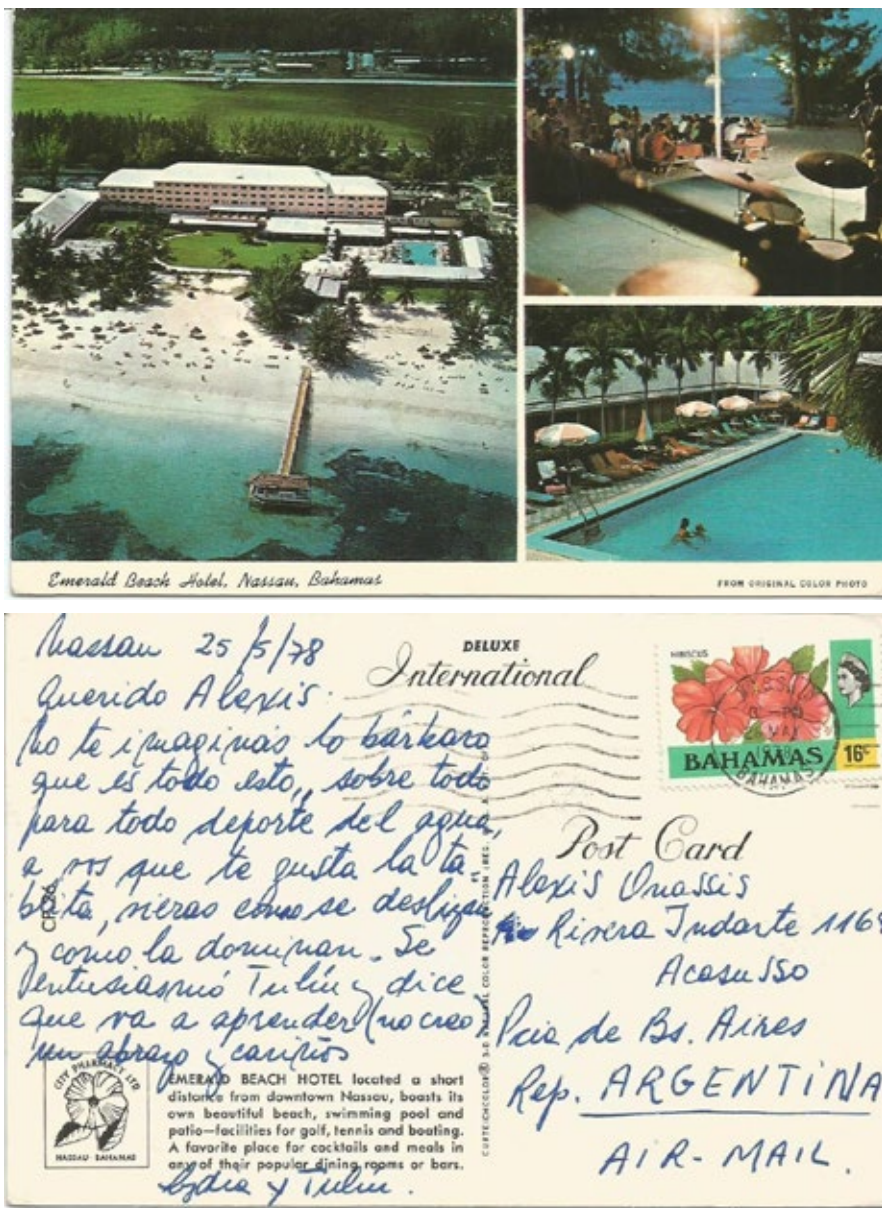 Emerald Beach Hotel, Nassau, Bahamas
FROM ORIGINAL COLOR PHOTO
Nassau 25/5/78
Querido Alexis:
No te imaginás lo bárbaro
que es todo esto, sobre todo
para todo deporte del agua,
a vos que te gusta la ta
blita, vieras como se deslizan
y como la dominan. Se
entusiasmó Tulin y dice
que va a aprender (no creo)
un abrazo y cariños
Lydia y Tulin.
DELUXE
International
Post Card
HIBISCUS
BAHAMAS 16c
NASSAU
MAY
1978
BAHAMAS
Alexis Onassis
Rivera Indarte 1169
Acasusso
Pcia de Bs. Aires
Rep. ARGENTINA
AIR-MAIL.
CITY PHARMACY LTD
NASSAU BAHAMAS
EMERALD BEACH HOTEL located a short
distance from downtown Nassau, boasts its
own beautiful beach, swimming pool and
patio—facilities for golf, tennis and boating.
A favorite place for cocktails and meals in
any of their popular dining rooms or bars.
CURTEICHCOLOR® 3-D NATURAL COLOR REPRODUCTION (REG.